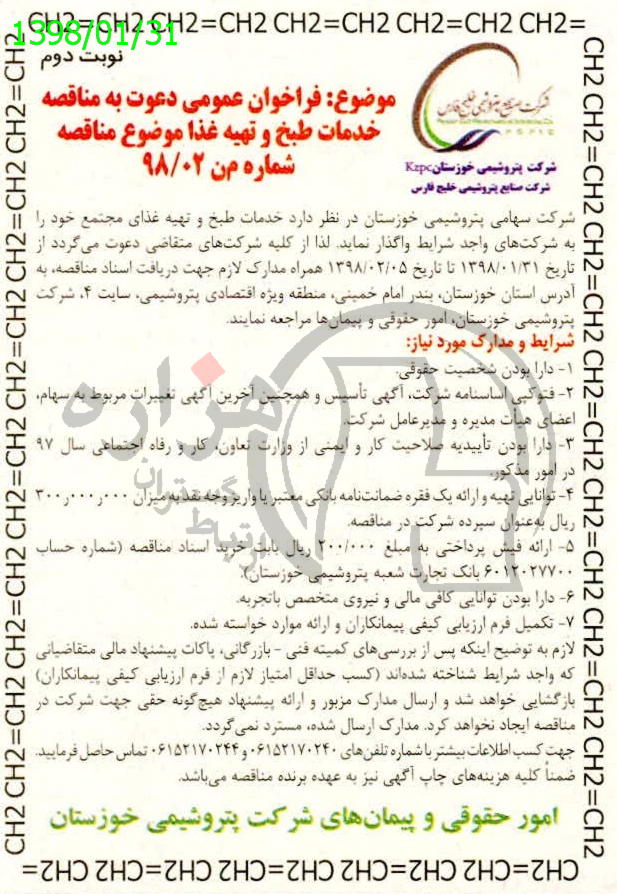 CH2=CH2 CH2=CH2 CH2=CH2 CH2=CH2 CH2=
1398/01/31
نوبت دوم
شرکت صنایع پتروشیمی خلیج فارس
P G P I C
شرکت پتروشیمی خوزستان Kzpc
شرکت صنایع پتروشیمی خلیج فارس
موضوع: فراخوان عمومی دعوت به مناقصه
خدمات طبخ و تهیه غذا موضوع مناقصه
شماره م‌ن ۹۸/۰۲
شرکت سهامی پتروشیمی خوزستان در نظر دارد خدمات طبخ و تهیه غذای مجتمع خود را
به شرکت‌های واجد شرایط واگذار نماید. لذا از کلیه شرکت‌های متقاضی دعوت می‌گردد از
تاریخ ۱۳۹۸/۰۱/۳۱ تا تاریخ ۱۳۹۸/۰۲/۰۵ همراه مدارک لازم جهت دریافت اسناد مناقصه، به
آدرس استان خوزستان، بندر امام خمینی، منطقه ویژه اقتصادی پتروشیمی، سایت ۴، شرکت
پتروشیمی خوزستان، امور حقوقی و پیمان‌ها مراجعه نمایند.
شرایط و مدارک مورد نیاز:
۱- دارا بودن شخصیت حقوقی.
۲- فتوکپی اساسنامه شرکت، آگهی تأسیس و همچنین آخرین آگهی تغییرات مربوط به سهام،
اعضای هیأت مدیره و مدیرعامل شرکت.
۳- دارا بودن تأییدیه صلاحیت کار و ایمنی از وزارت تعاون، کار و رفاه اجتماعی سال ۹۷
در امور مذکور.
۴- توانایی تهیه و ارائه یک فقره ضمانت‌نامه بانکی معتبر یا واریز وجه نقد به میزان ۳۰۰ر۰۰۰ر۰۰۰
ریال به‌عنوان سپرده شرکت در مناقصه.
۵- ارائه فیش پرداختی به مبلغ ۲۰۰/۰۰۰ ریال بابت خرید اسناد مناقصه (شماره حساب
۶۰۱۲۰۲۷۷۰۰ بانک تجارت شعبه پتروشیمی خوزستان).
۶- دارا بودن توانایی کافی مالی و نیروی متخصص باتجربه.
۷- تکمیل فرم ارزیابی کیفی پیمانکاران و ارائه موارد خواسته شده.
لازم به توضیح اینکه پس از بررسی‌های کمیته فنی - بازرگانی، پاکات پیشنهاد مالی متقاضیانی
که واجد شرایط شناخته شده‌اند (کسب حداقل امتیاز لازم از فرم ارزیابی کیفی پیمانکاران)
بازگشایی خواهد شد و ارسال مدارک مزبور و ارائه پیشنهاد هیچ‌گونه حقی جهت شرکت در
مناقصه ایجاد نخواهد کرد. مدارک ارسال شده، مسترد نمی‌گردد.
جهت کسب اطلاعات بیشتر با شماره تلفن‌های ۰۶۱۵۲۱۷۰۲۴۰ و ۰۶۱۵۲۱۷۰۲۴۴ تماس حاصل فرمایید.
ضمناً کلیه هزینه‌های چاپ آگهی نیز به عهده برنده مناقصه می‌باشد.
امور حقوقی و پیمان‌های شرکت پتروشیمی خوزستان
هزاره
گستران
ارتباط
CH2 CH2=CH2 CH2=CH2 CH2=CH2 CH2=CH2
CH2 CH2=CH2 CH2=CH2 CH2=CH2 CH2=CH2
CH2 CH2=CH2 CH2=CH2 CH2=CH2 CH2=